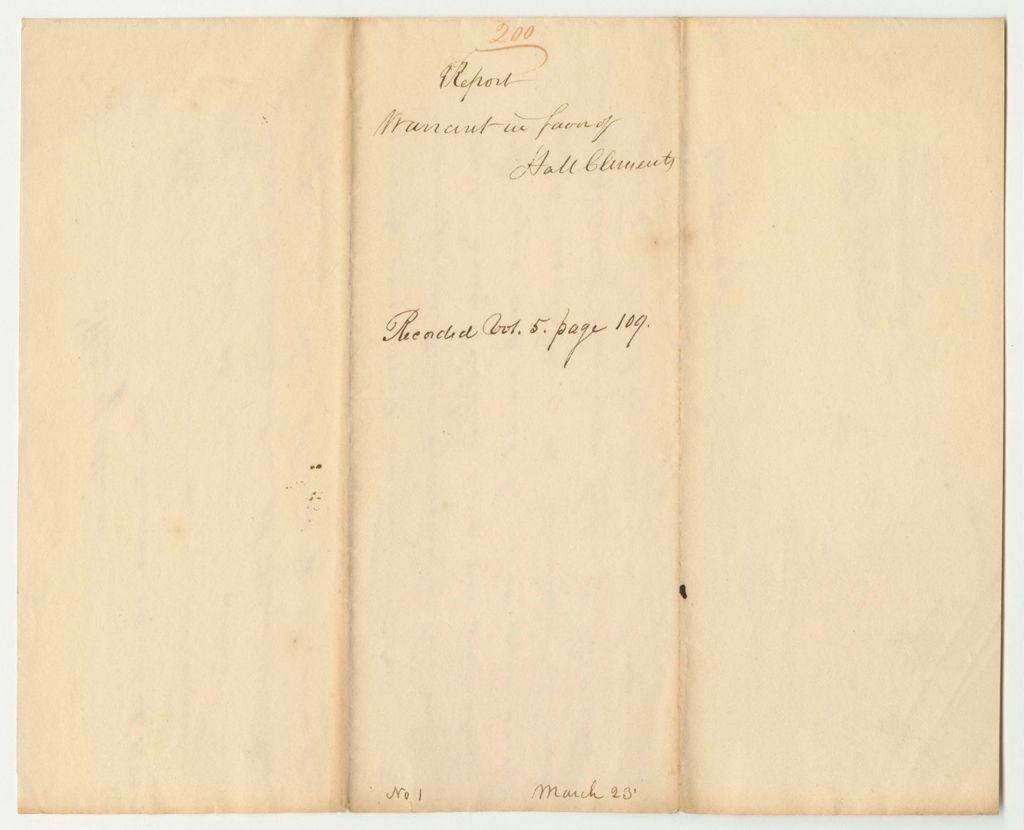 200
Report
Warrant in favor of
Hall Clements
Recorded Vol. 5. page 109.
No 1 March 23